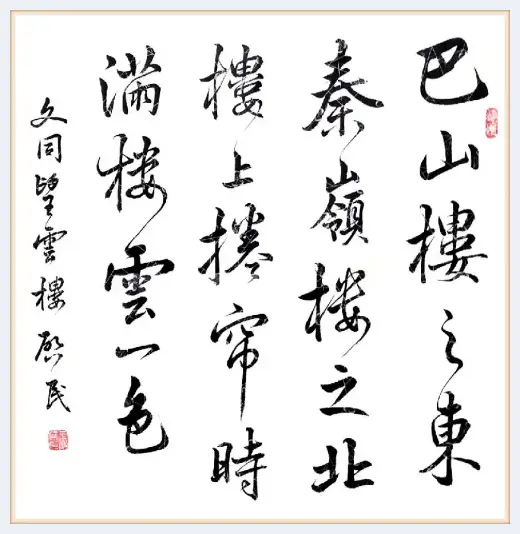 巴山樓之東
秦嶺楼之北
樓上捲帘時
满楼雲一色
文同望雲樓 啟民